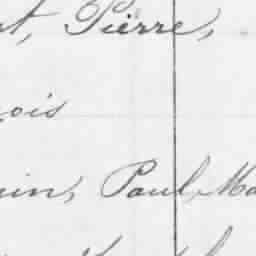 t, Pierre,
ois
in, Paul, Ma